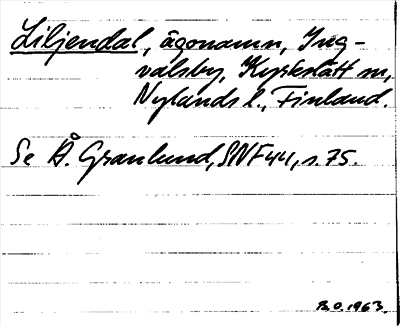 Liljendal, ägonamn, Ing-
valsby, Kyrkslätt sn,
Nylands l., Finland.
Se Å. Granlund, SNF 44, s. 75.
B.O. 1963.